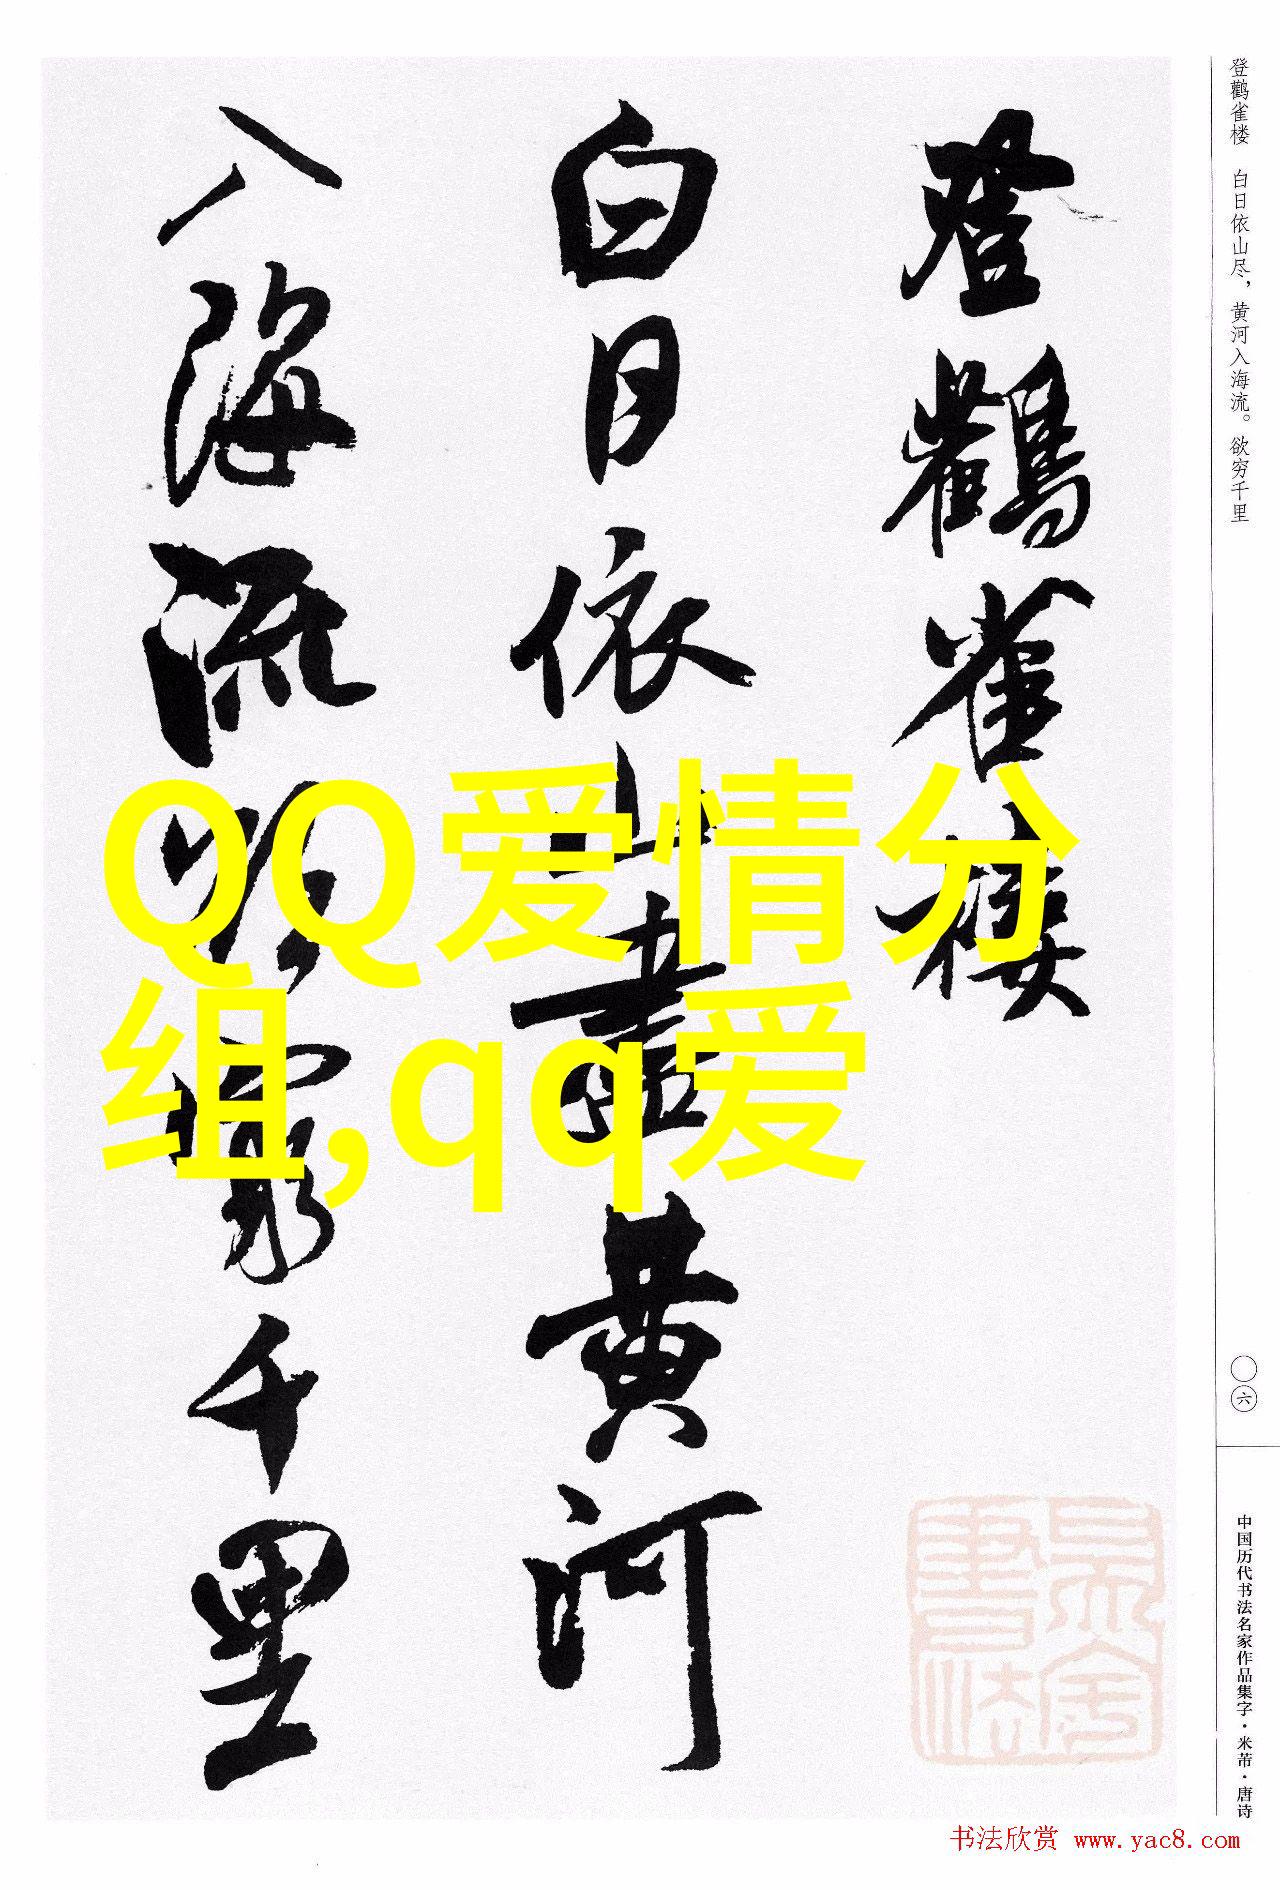 登鹳雀楼 白日依山尽，黄河入海流。欲穷千里
登鸛雀樓
白日依山盡黄河
入海流欲窮千里
QQ爱情分
组,qq爱
六
中国历代书法名家作品集字·米芾·唐诗
書法
书法欣赏 www.yac8.com